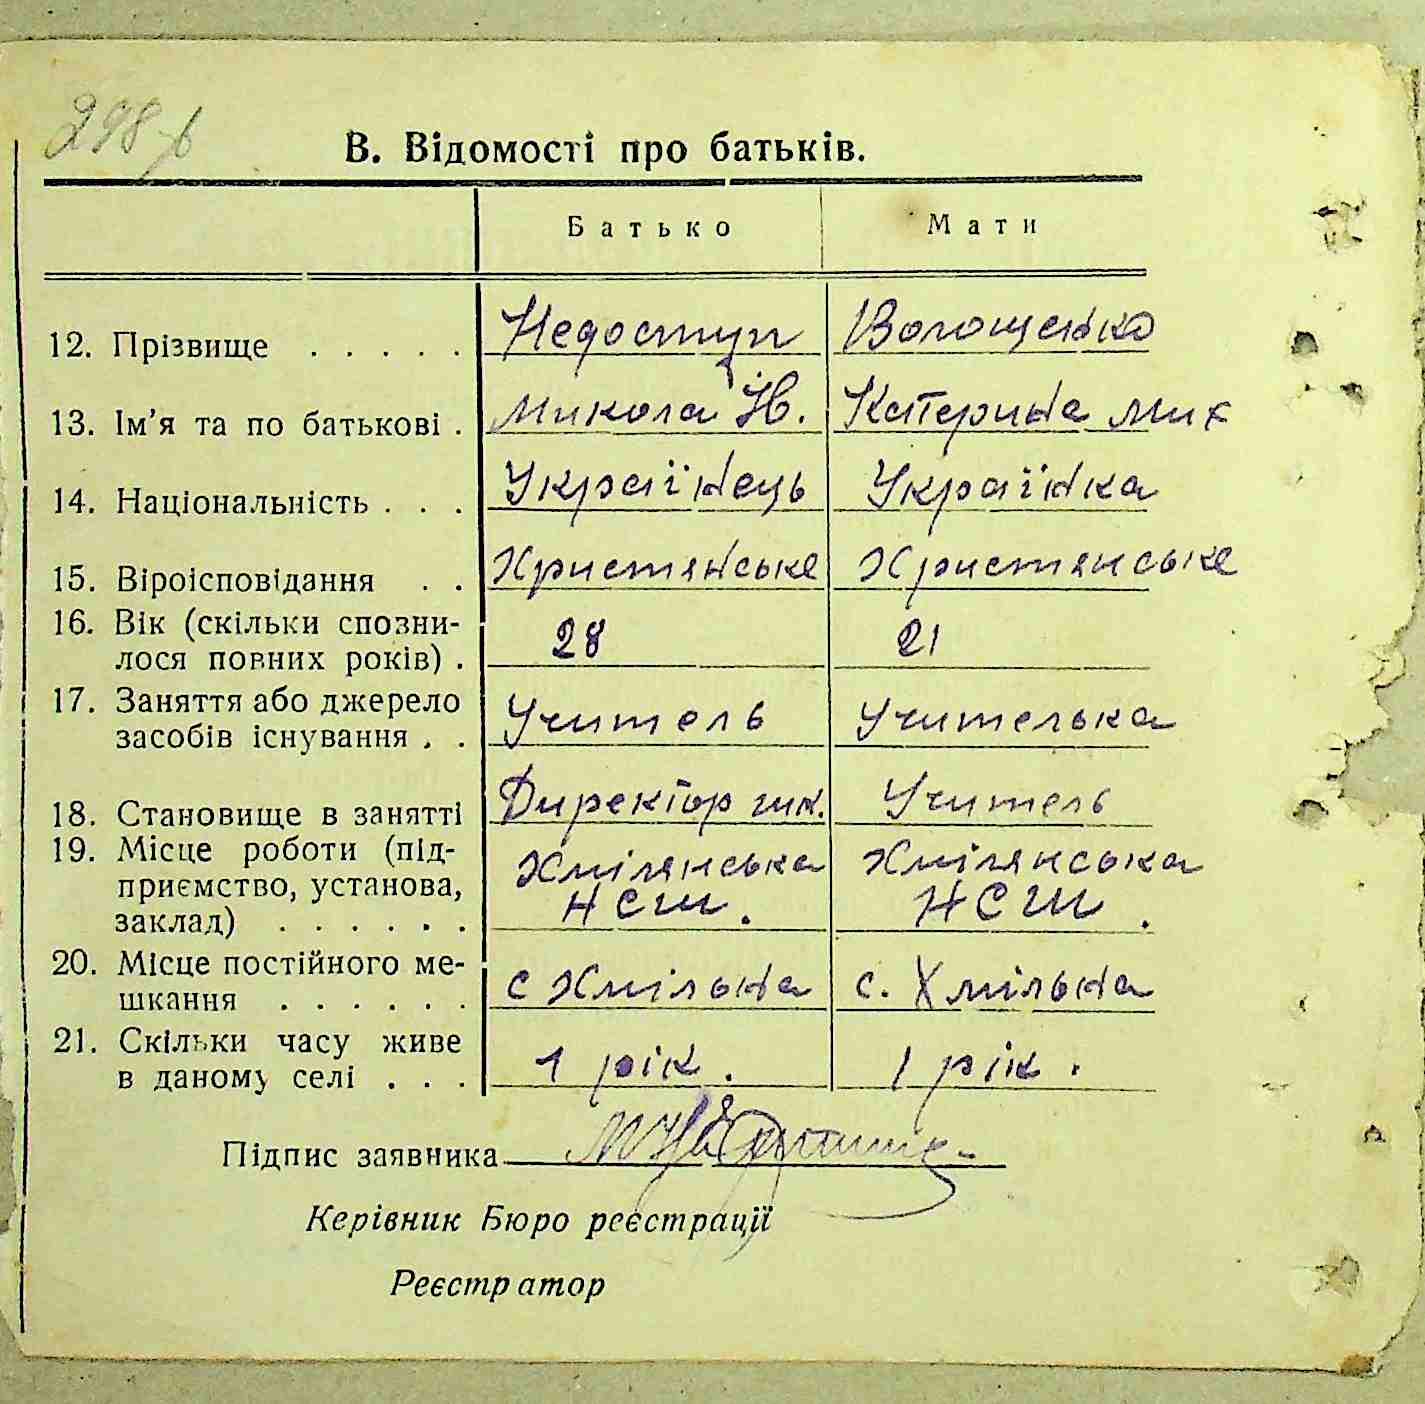 298
В. Відомості про батьків.
Батько Мати
12. Прізвище . . . . . Недоступ Волощенко
13. Ім’я та по батькові . Микола Й. Катерина Мих
14. Національність . . . Українець Українка
15. Віроісповідання . . Християнське Християнське
16. Вік (скільки спозни-
лося повних років) . 28 21
17. Заняття або джерело
засобів існування . . Учитель Учителька
18. Становище в занятті Директор шк. Учитель
19. Місце роботи (під-
приємство, установа, Хмілянська Хмілянська
заклад) . . . . . . НСШ. НСШ.
20. Місце постійного ме-
шкання . . . . . . с Хмільна с. Хмільна
21. Скільки часу живе
в даному селі . . . 1 рік. 1 рік.
Підпис заявника
Керівник Бюро реєстрації
Реєстратор